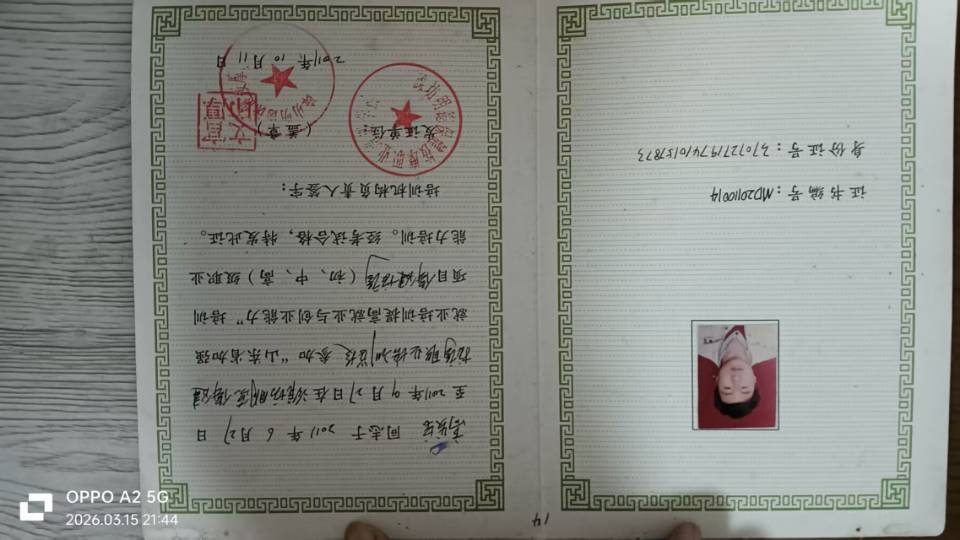 证书编号：MD20110014
身份证号：370727197410157873
14
同志于 2011 年 6 月 27 日
至 2011 年 9 月 27 日在潍坊保健
按摩职业培训学校参加“山东省加强
就业培训提高就业与创业能力”培训
项目保健按摩（初、中、高）级职业
能力培训。经考试合格，特发此证。
培训机构负责人签字：
发证单位：（盖章）
2011 年 10 月 11 日
OPPO A2 5G
2026.03.15 21:44